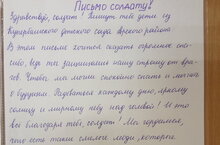 Письмо солдату!
Здравствуй, солдат! Пишут тебе дети из
детского сада Арского района
В этом письме хочется сказать огромное спа-
сибо, всем же защищаешь нашу страну от вра-
гов. Чтобы мы могли спокойно спать и мечтать
о будущем. Радоваться каждому дню, яркому
солнцу и мирному небу над головой! И это
все благодаря тебе, солдат! Мы гордимся,
что есть такие смелые люди, которые